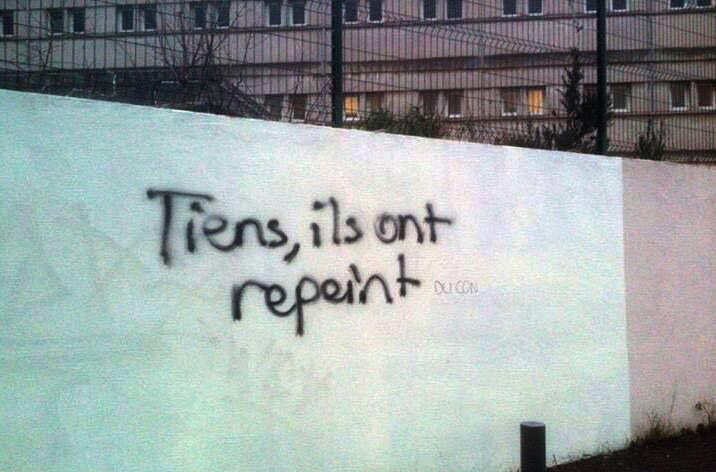 Tiens, ils ont
repeint
DUCON